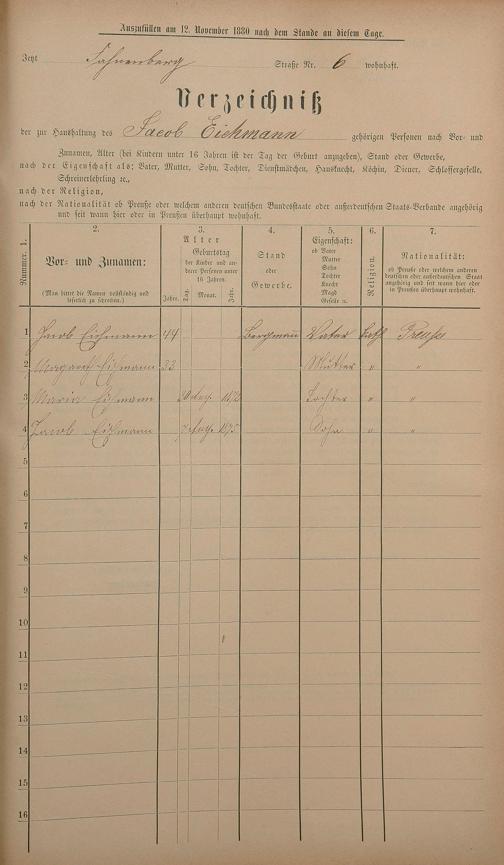 Auszufüllen am 12. November 1880 nach dem Stande an diesem Tage.
Jetzt Fahrenberg Straße Nr. 6 wohnhaft.
Verzeichniß
der zur Haushaltung des Jacob Eichmann gehörigen Personen nach Vor- und
Zunamen, Alter (bei Kindern unter 16 Jahren ist der Tag der Geburt anzugeben), Stand oder Gewerbe,
nach der Eigenschaft als: Vater, Mutter, Sohn, Tochter, Dienstmädchen, Hausknecht, Köchin, Diener, Schlossergeselle,
Schreinerlehrling ꝛc.,
nach der Religion,
nach der Nationalität ob Preuße oder welchem anderen deutschen Bundesstaate oder außerdeutschen Staats-Verbande angehörig
und seit wann hier oder in Preußen überhaupt wohnhaft.
Nummer. 1.
2.
Vor- und Zunamen:
(Man bittet die Namen vollständig und
leserlich zu schreiben.)
3.
Alter
Geburtstag
der Kinder und an-
derer Personen unter
16 Jahren.
Jahre. Tag. Monat. Jahr.
4.
Stand
oder
Gewerbe.
5.
Eigenschaft:
ob Vater
Mutter
Sohn
Tochter
Knecht
Magd
Geselle u.
6.
Religion.
7.
Nationalität:
ob Preuße oder welchem anderen
deutschen oder außerdeutschen Staat
angehörig und seit wann hier oder
in Preußen überhaupt wohnhaft.
1 Jacob Eichmann 44 Bergmann Vater kath Preuße
2 Margareth Eichmann 33 Mutter " "
3 Maria Eichmann Tochter " "
4 Jacob Eichmann Sohn " "
5
6
7
8
9
10
11
12
13
14
15
16